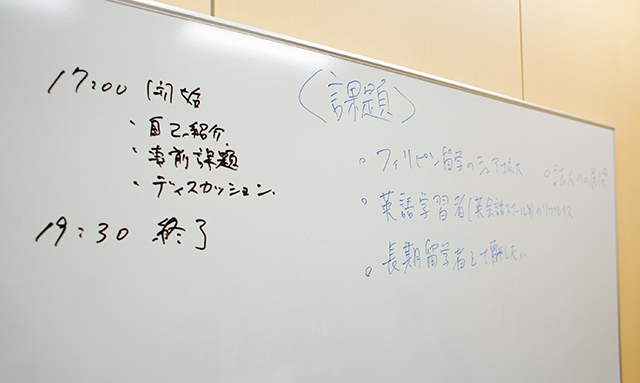 17:00 開始
・自己紹介
・事前課題
・ディスカッション
19:30 終了
〈課題〉
○ フィリピン留学のシェア拡大
○ 法人への展開
○ 英語学習者(英会話スクール等のリプレイス
○ 長期留学者として